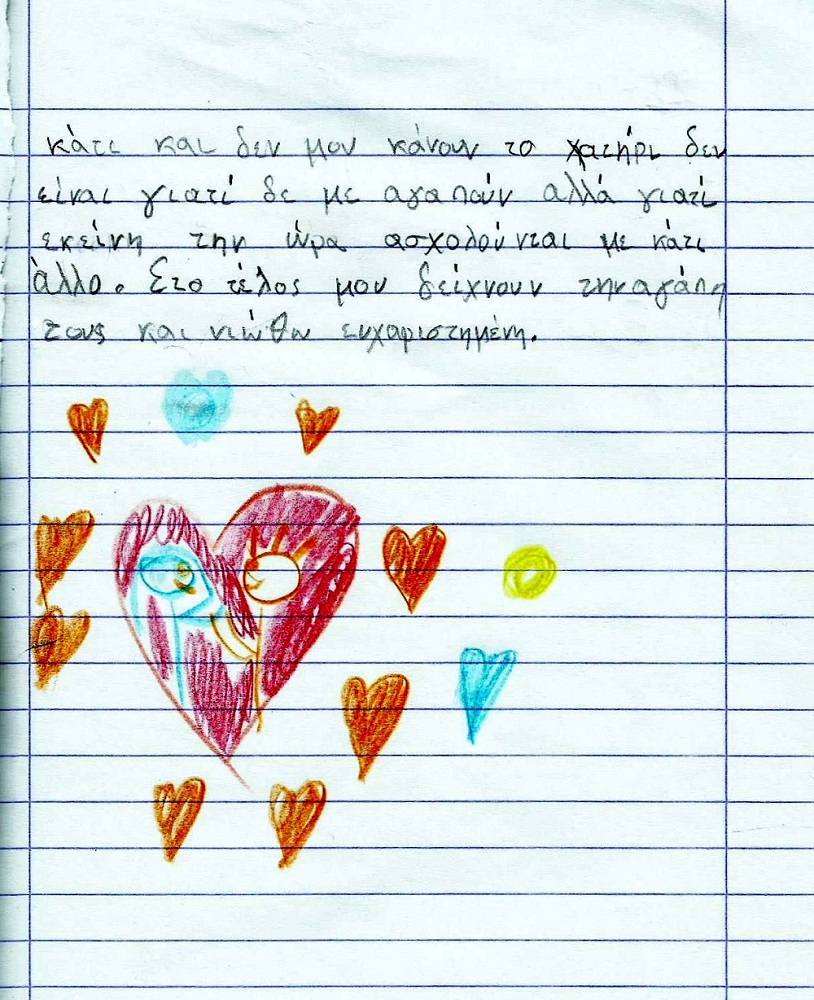 κάτι και δεν μου κάνουν το χατήρι δεν
είναι γιατί δε με αγαπούν αλλά γιατί
εκείνη την ώρα ασχολούνται με κάτι
άλλο. Στο τέλος μου δείχνουν την αγάπη
τους και νιώθω ευχαριστημένη.